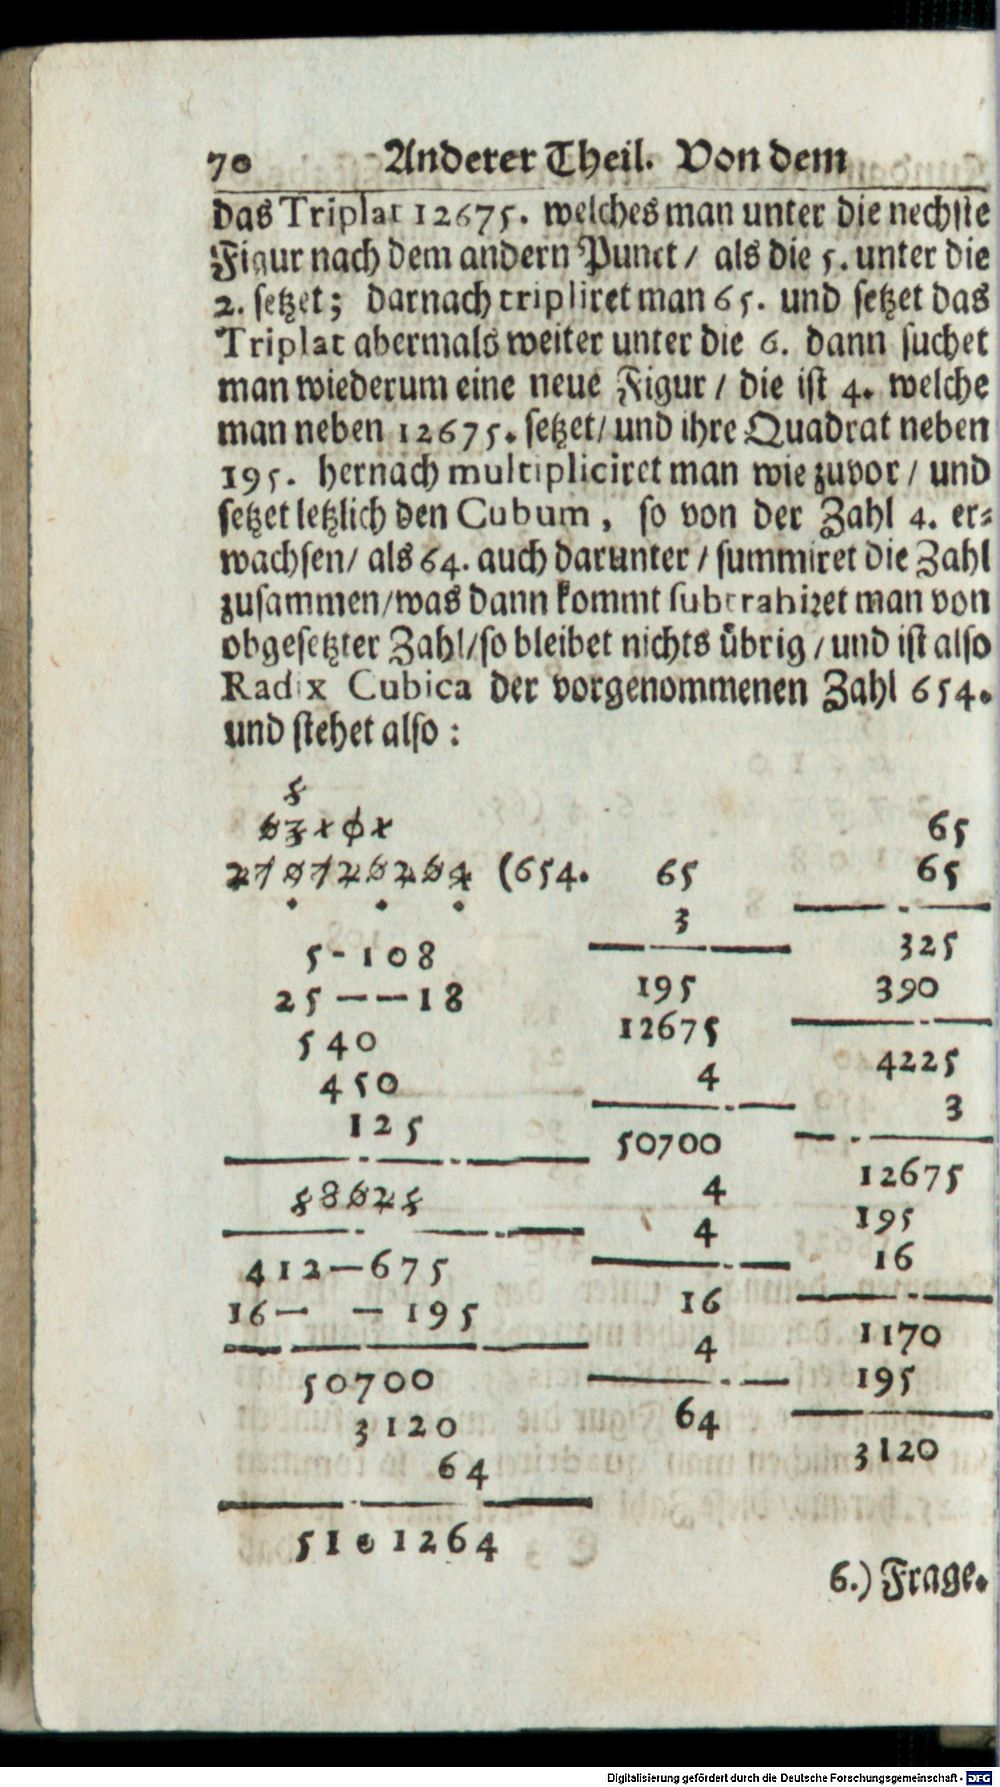 70 Anderer Theil. Von dem
das Triplat 12675. welches man unter die nechste
Figur nach dem andern Punct / als die 5. unter die
2. setzet; darnach tripliret man 65. und setzet das
Triplat abermals weiter unter die 6. dann suchet
man wiederum eine neue Figur / die ist 4. welche
man neben 12675. setzet/ und ihre Quadrat neben
195. hernach multipliciret man wie zuvor / und
setzet letzlich den Cubum, so von der Zahl 4. er⸗
wachsen/ als 64. auch darunter / summiret die Zahl
zusammen/was dann kommt subtrahiret man von
obgesetzter Zahl/so bleibet nichts übrig / und ist also
Radix Cubica der vorgenommenen Zahl 654.
und stehet also:
5
63101
279726264 (654.
5-108
25——18
540
450
125
58625
412—675
16— — 195
50700
3120
64
5101264
65
3
195
12675
4
50700
4
4
16
4
64
65
65
325
390
4225
3
12675
195
16
1170
195
3120
6.) Frage.
Digitalisierung gefördert durch die Deutsche Forschungsgemeinschaft - DFG